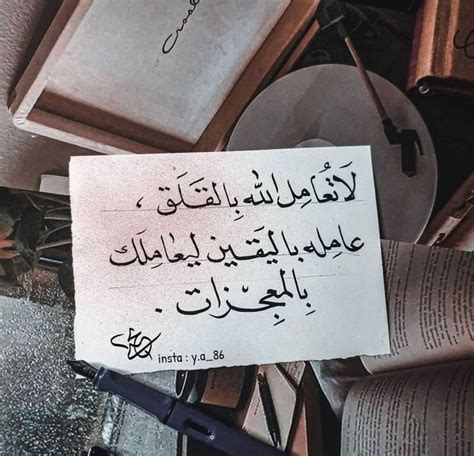 لَا تُعَامِل اللّه بِالقَلَق ،
عامِله باليَقين ليُعامِلَك
بِالمعجِزات .
insta : y.a_86